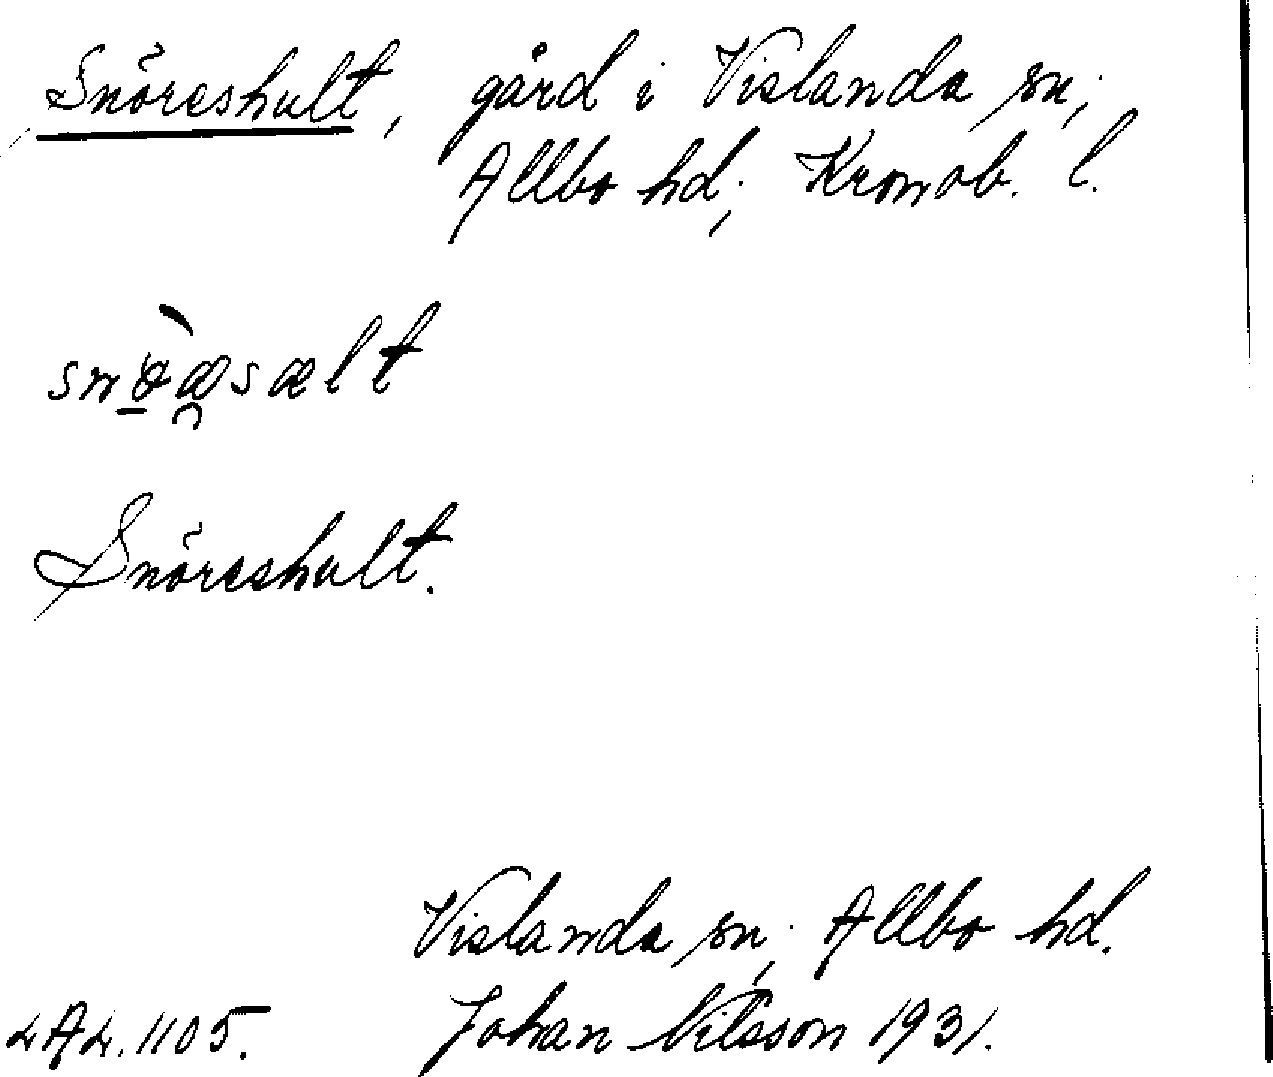 Snöreshult, gård i Vislanda sn;
Allbo hd; Kronob. l.
snö̀æsælt
Snöreshult.
Vislanda sn; Allbo hd.
LAL. 1105. Johan Nilsson 1931.